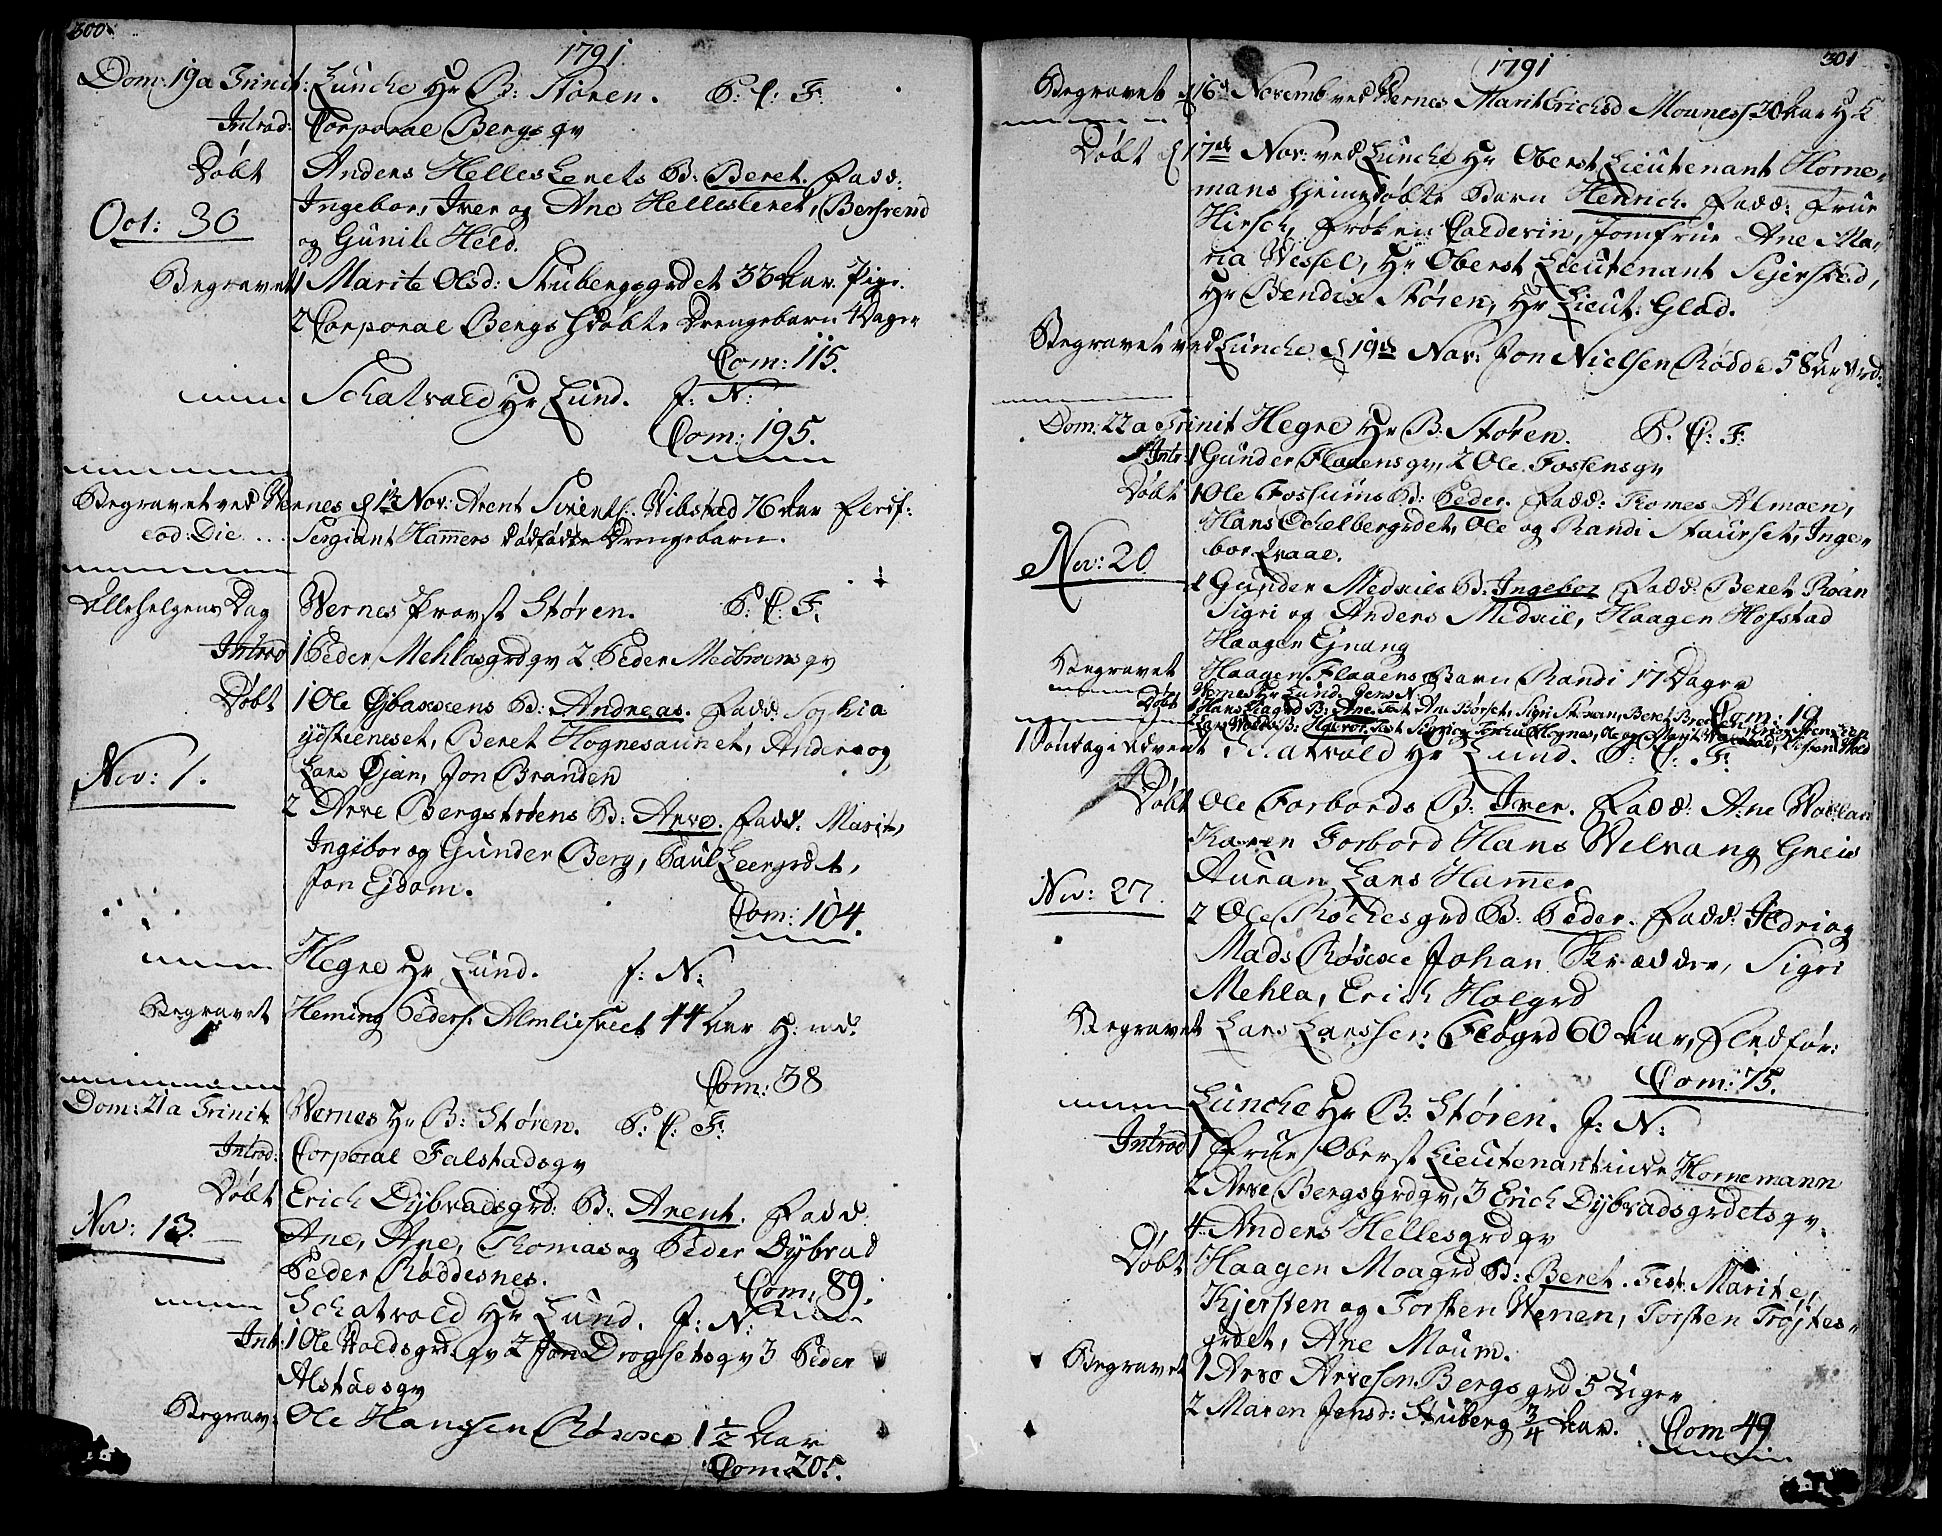 300
1791
Dom: 19 a Trinit: Lunche Hr B: Stören. P: C: F:
Introd: Corporal Bergs qv
Döbt Anders Helles Lerets B: Beret. Fadd:
Ingebor, Iver og Ane Hellesleret, Berfrend
Oct: 30
og Gunild Held.
Begravet 1 Marite Olsd: Stubergsgrdet 33 Aar. Pige
2 Corporal Bergs Hdöbte Drengebarn 4 Dager
Com: 115.
Schatvold Hr Lund. f: N:
Com: 195.
Begravet ved Wernes d 12 Nov: Arent Sivertf. Wibstad 76 Aar
eod: Die ... Sergiant Hamers dödfödte Drengebarn.
Allehelgens Dag Wernes Provst Stören. P: C: F:
Introd 1 Peder Mehlasgrdqv 2. Peder Medbroens qv
Döbt 1 Ole Öjbakkens B: Andreas. Fadd: Sophia
Ydstieneset, Beret Hognesaunet, Anders og
Nov: 1.
Lars Öjan, Jon Branden
2 Arve Bergströens B: Arve. Fadd: Marit,
Ingebor og Gunder Berg, Paul Leergrdet,
Jon Ejdom.
Com: 104.
Hegre Hr Lund. f: N:
Begravet Heming Peders. Almlisveet 44 Aar
Com: 38
Dom: 21 a Trinit Wernes Hr B: Stören. P: C: F:
Introd: Corporal Falstadsqv
Döbt Erich Dybvadsgrd: B: Arent. Fadd:
Nov: 13.
Ane, Ane, Thomas og Peder Dybvad
Peder Röddesnes.
Com: 89.
Schatvold Hr Lund. f: N:
Int: 1 Ole Woldsgrd qv 2 Jon Drogsetsqv 3 Peder
Alstadsqv
Begrav: Ole Hansen Rökke 1 1/2 Aar
Com: 205.
1791
301
Begravet d 16 Novemb ved Wernes Marit Erichsd Mounes 30 Aar
Döbt d 17de Nov: ved Lunche Hr Oberst Lieutenant Horne-
mans hjemedöbte Barn Henrich. Fadd: Frue
Hirsch, Fröken Coldevin, Jomfrue Ane Ma-
ria Wessel, Hr Oberst Lieutenant Sejersted,
Hr Bendix Stören, Hr Lieut: Glad.
Begravet ved Lunche d 19de Nov: Jon Nielsen Rödde 58
Dom: 22 a Trinit Hegre Hr B: Stören. P. C: F:
Intr: 1 Gunder Flaaensqv, 2 Ole Fossensqv
Döbt 1 Ole Fossums B: Peder. Fadd: Tomes Almoen,
Hans Ockelbergrdet, Ole og Randi Staurset, Inge-
Nov: 20
bor Qvaal.
2 Gunder Medxiets B: Ingebor Fadd: Beret Röan
Sigri og Anders Medxiil, Haagen Hofstad
Haagen Ejnang
Begravet Haagen Flaaens Barn Randi 17 Dager
Wernes Hr Lund.
Com: 19
Döbt 1 Hans B: Ane. Test. Ane Börset, Sigri
2 Lars Wolds B: Test
1 Söntag i Advent Schatvold Hr Lund. P: C: F:
Döbt Ole Forbords B: Iver. Fadd: Ane
Karen Forbord Hans Welvang Greis
Auran, Lars Hamer
Nov: 27.
2 Ole Rochesgrd B: Peder. Fadd: og
Mads Rökke Johan Skrædder, Sigri
Mehla, Erich Holgrd
Begravet Lars Larssen Flögrd 60 Aar,
Com: 75.
Lunche Hr B: Stören. f: N:
Introd 1 Frue Oberst Lieutenantinde Hornemann
2 Arve Bergsgrdqv, 3 Erich Dybvadsgrdetsqv.
4 Anders Hellesgrdqv
Döbt Haagen Moagrd B: Beret. Test. Marite,
Kjersten og Torsten Wenen, Torsten Tröjtes-
grdet, Ane Moum.
Begravet 1 Arve Arvesen Bergsgrd 5 Uger
2 Maren Jensd: Stuberg 3/4 Aar.
Com 49